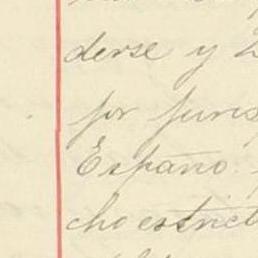 derse y
por juris
Españo
cho estrict